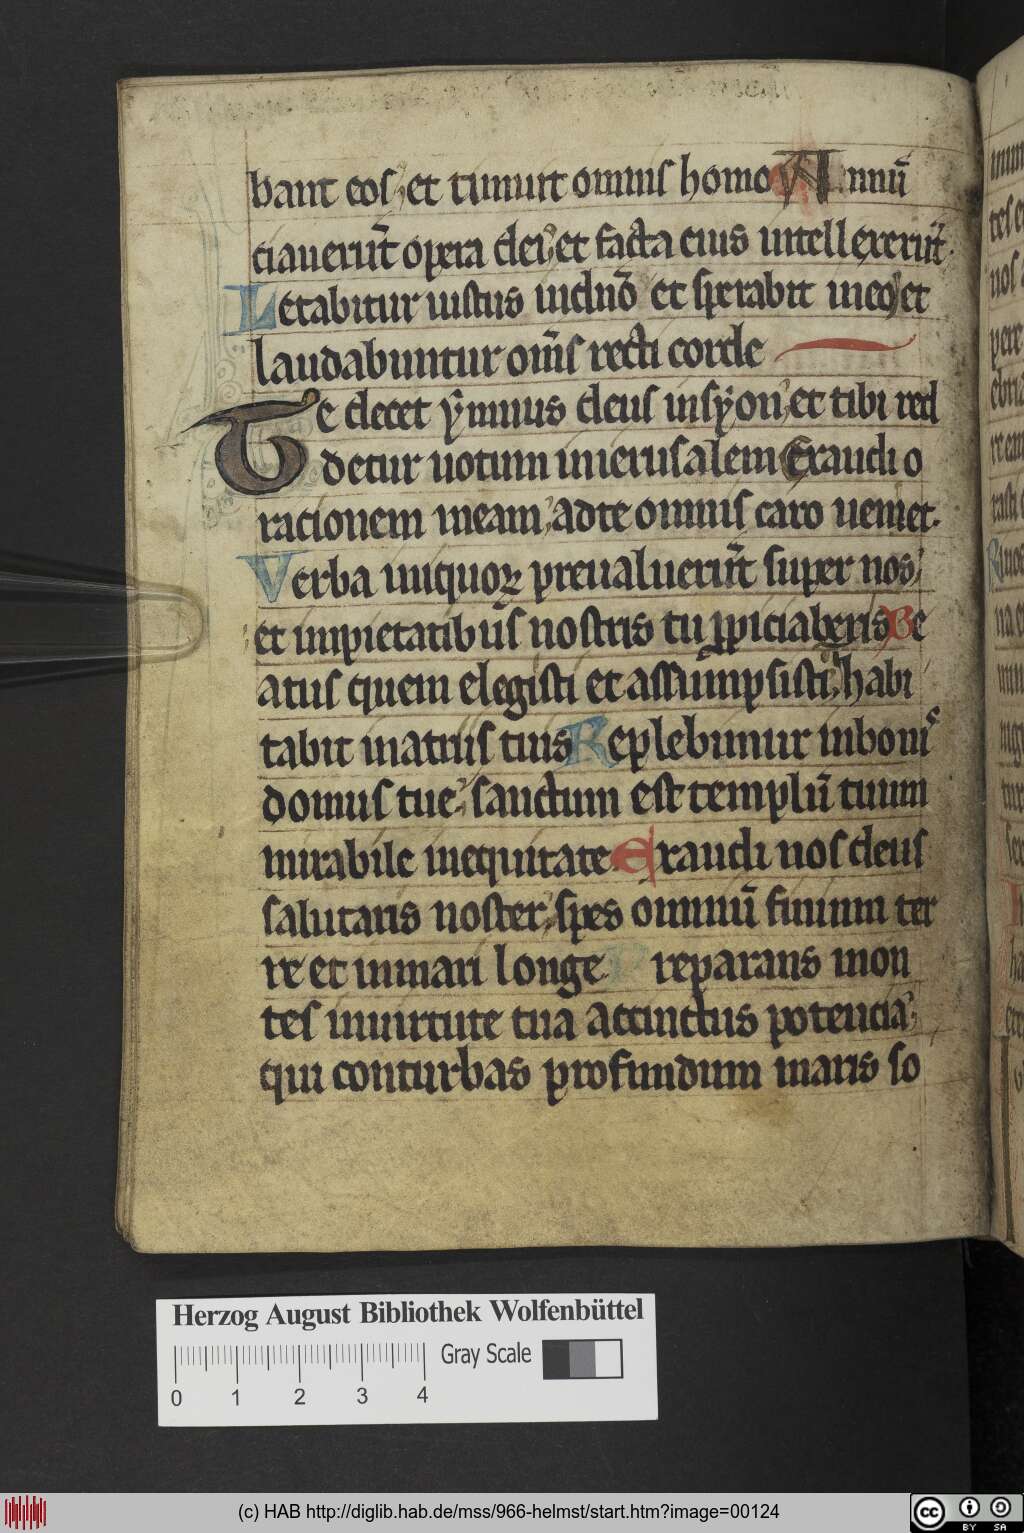 bant eos, et timuit omnis homo Annnū
ciauerūt opera dei, et facta eius intellexerūt.
Letabitur iustus indnō et sperabit ineo, et
laudabuntur om̄s recti corde
Te decet ẏmnus deus insẏon, et tibi red
detur uotum inierusalem Exaudi o
rationem meam, adte omnis caro ueniet.
Verba iniquoꝝ preualuerūt super nos,
et impietatibus nostris tu ꝓpiciaberis Be
atus quem elegisti et assumpsisti, habi
tabit inatriis tuis Replebimur inbonis
domus tue, sanctum est templū tuum
mirabile inequitate Exaudi nos deus
salutaris noster, spes omniū finium ter
re et inmari longe Preparans mon
tes inuirtute tua accinctus potencia,
qui conturbas profundum maris so
Herzog August Bibliothek Wolfenbüttel
Gray Scale
0 1 2 3 4
(c) HAB http://diglib.hab.de/mss/966-helmst/start.htm?image=00124
cc BY SA